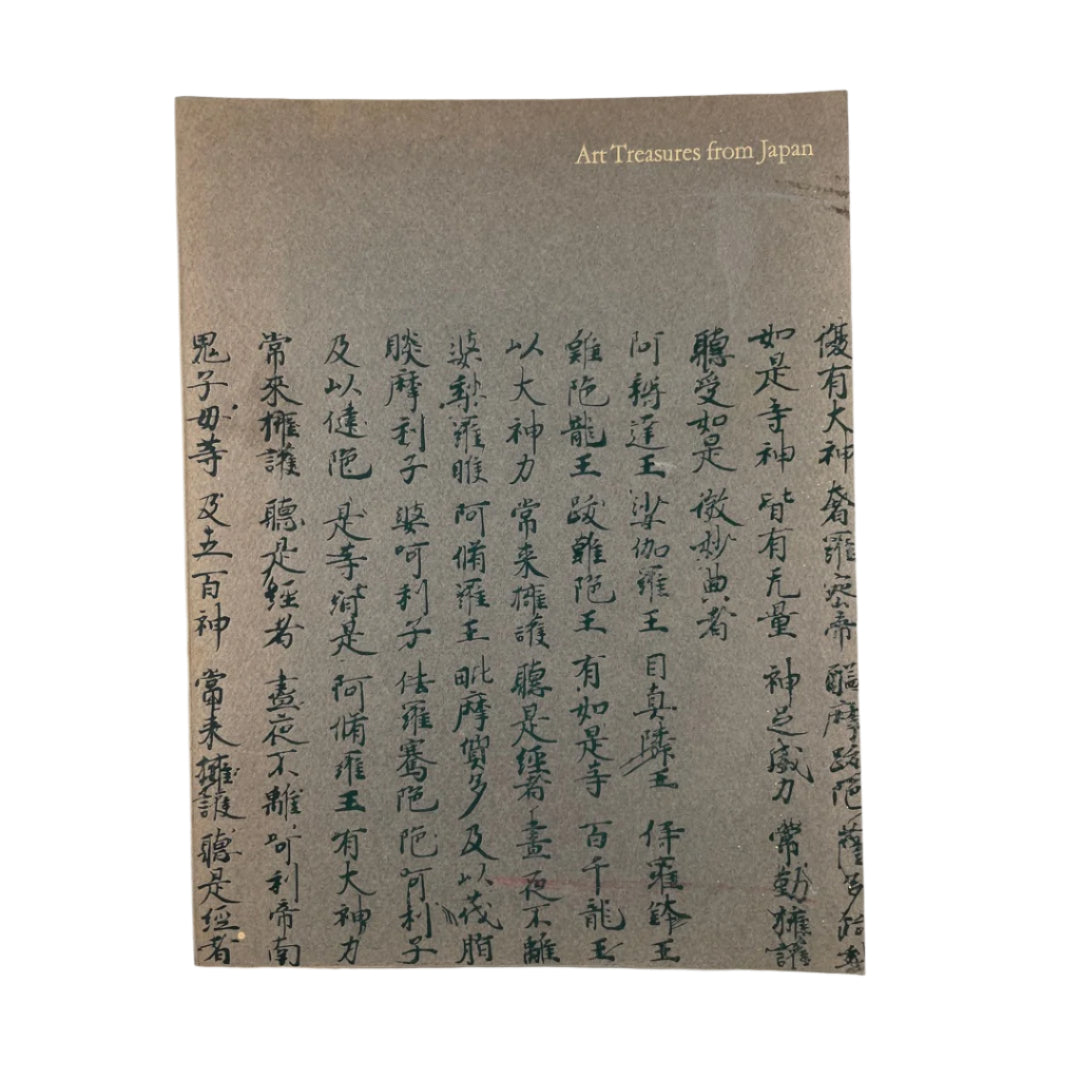 Art Treasures from Japan
有大神 奢羅蜜帝 醯摩跋陀
如是等神 皆有无量 神足威力 常勤擁護
聽受如是 微妙典者
阿耨達王 娑伽羅王 目真隣王 伊羅鉢王
難陀龍王 跋難陀王 有如是等 百千龍王
以大神力 常来擁護 聽是經者 晝夜不離
婆梨羅睺 阿脩羅王 毗摩質多 及以茂脂
睒摩利子 婆呵利子 佉羅騫陀 陀呵利子
及以揵陀 是等皆是 阿脩羅王 有大神力
常來擁護 聽是經者 晝夜不離 呵利帝南
鬼子母等 及五百神 常来擁護 聽是經者